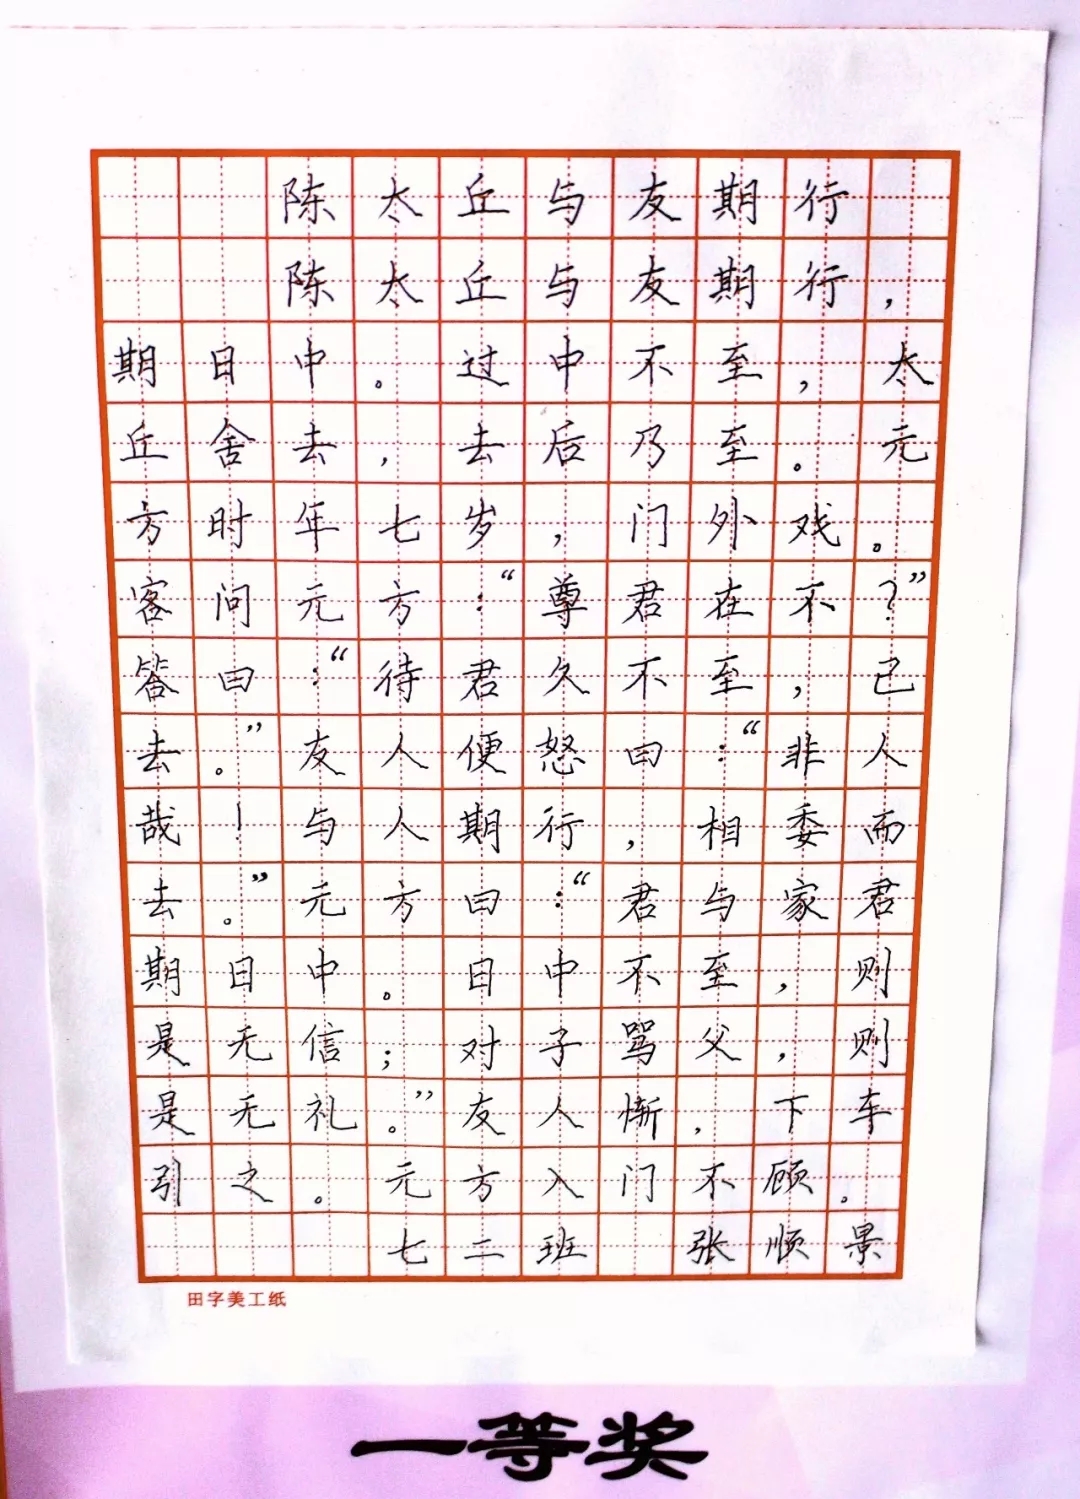 陈太丘与友期行
陈太丘与友期行，
期日中。过中不至，太
丘舍去，去后乃至。元
方时年七岁，门外戏。
客问元方：“尊君在不？”
答曰：“待君久不至，已
去。”友人便怒曰：“非人
哉！与人期行，相委而
去。”元方曰：“君与家君
期日中。日中不至，则
是无信；对子骂父，则
是无礼。”友人惭，下车
引之。元方入门不顾。
七二班 张顺景
田字美工纸
一等奖